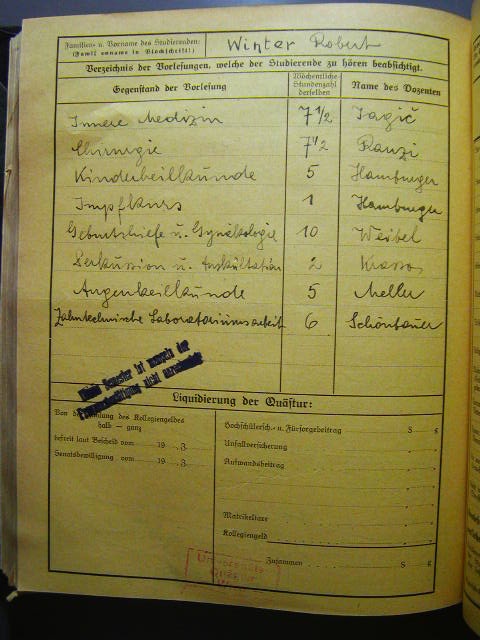 Familien- u. Vorname des Studierenden:
(Famil enname in Blockschrift!)
Winter Robert
Verzeichnis der Vorlesungen, welche der Studierende zu hören beabsichtigt.
Gegenstand der Vorlesung
Wöchentliche
Stundenzahl
derselben
Name des Dozenten
Innere Medizin 7 1/2 Jagič
Chirurgie 7 1/2 Ranzi
Kinderheilkunde 5 Hamburger
Impfkurs 1 Hamburger
Geburtshilfe u. Gynäkologie 10 Weibel
Perkussion u. Auskultation 2
Augenheilkunde 5 Meller
Zahntechnische Laboratoriumsarbeit 6 Schönbauer
Semester ist
nicht
Liquidierung der Quästur:
Von d lung des Kollegiengeldes
halb — ganz
befreit laut Bescheid vom 19 Z.
Senatsbewilligung vom 19 Z.
Hochschülersch.- u. Fürsorgebeitrag S g
Unfallversicherung
Aufwandsbeitrag
Matrikeltaxe
Kollegiengeld
Zusammen S g